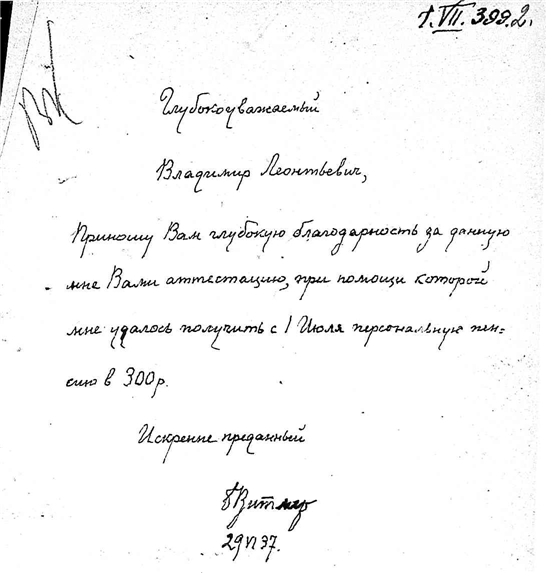 1.VII.399.2.
Глубокоуважаемый
Владимир Леонтьевич,
Приношу Вам глубокую благодарность за данную
мне Вами аттестацию, при помощи которой
мне удалось получить с 1 Июля персональную пен=
сию в 300 р.
Искренне преданный
29 VI 37.